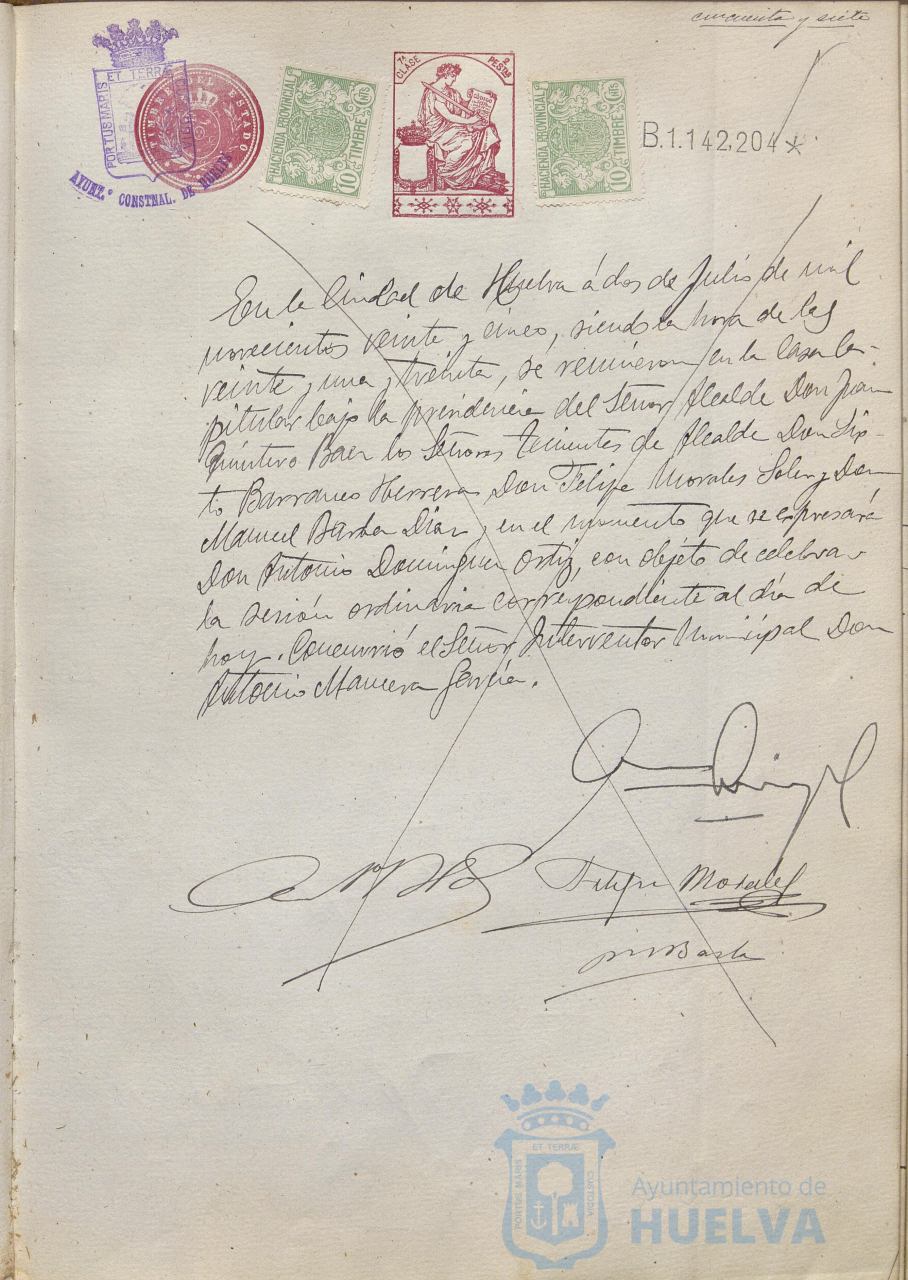 cincuenta y siete
PORTUS MARIS ET TERRÆ
AYUNZ.º CONSTNAL. DE
TIMBRE DEL ESTADO
HACIENDA PROVINCIAL
TIMBRE
10 Cts
7ª CLASE
2 PESTAS
HACIENDA PROVINCIAL
TIMBRE
10 Cts
B.1.142,204 *
En la Ciudad de Huelva á dos de Julio de mil
novecientos veinte y cinco, siendo la hora de las
veinte y una y treinta, se reunieron en la Casa Ca-
pitular bajo la presidencia del Señor Alcalde Don Juan
Quintero Baez los Señores Tenientes de Alcalde Don Six-
to Barranco Herrera Don Felipe Morales Soler y Don
Manuel Barba Diaz y en el momento que se expresará
Don Antonio Dominguez Ortiz, con objeto de celebrar
la sesión ordinaria correspondiente al día de
hoy. Concurrió el Señor Interventor Municipal Don
Antonio Mancera García.
Felipe Morales
Barba
ET TERRÆ
PORTUS MARIS
CUSTODIA
Ayuntamiento de
HUELVA